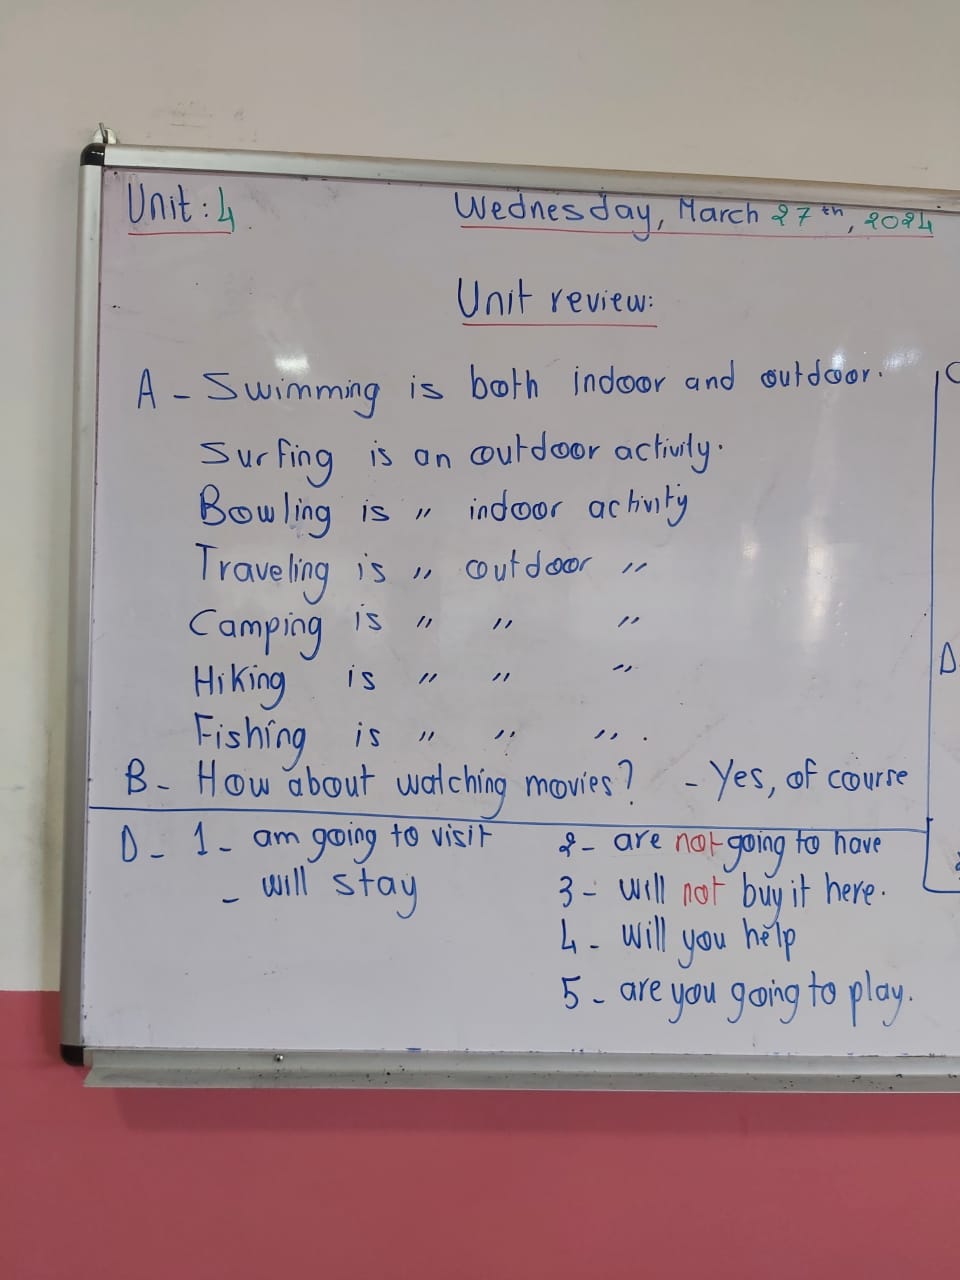 Unit: 4
Wednesday, March 27th, 2024
Unit review:
A - Swimming is both indoor and outdoor.
Surfing is an outdoor activity.
Bowling is " indoor activity
Traveling is " outdoor "
Camping is " " "
Hiking is " " "
Fishing is " " " .
B - How about watching movies? - Yes, of course
D - 1 - am going to visit
- will stay
2 - are not going to have
3 - will not buy it here.
4 - will you help
5 - are you going to play.
D